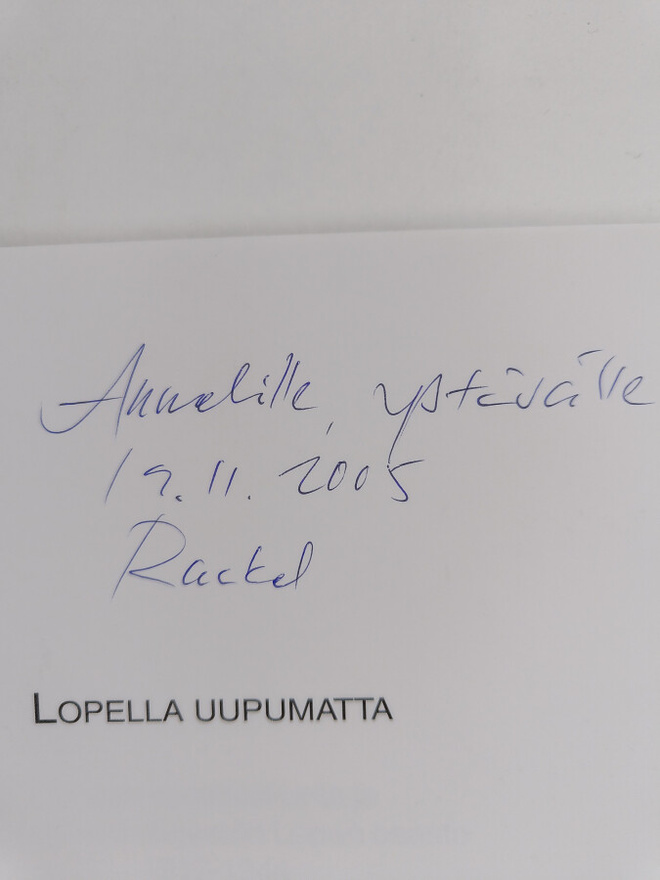 Annelille, ystävälle
19.11.2005
Rackel
LOPELLA UUPUMATTA